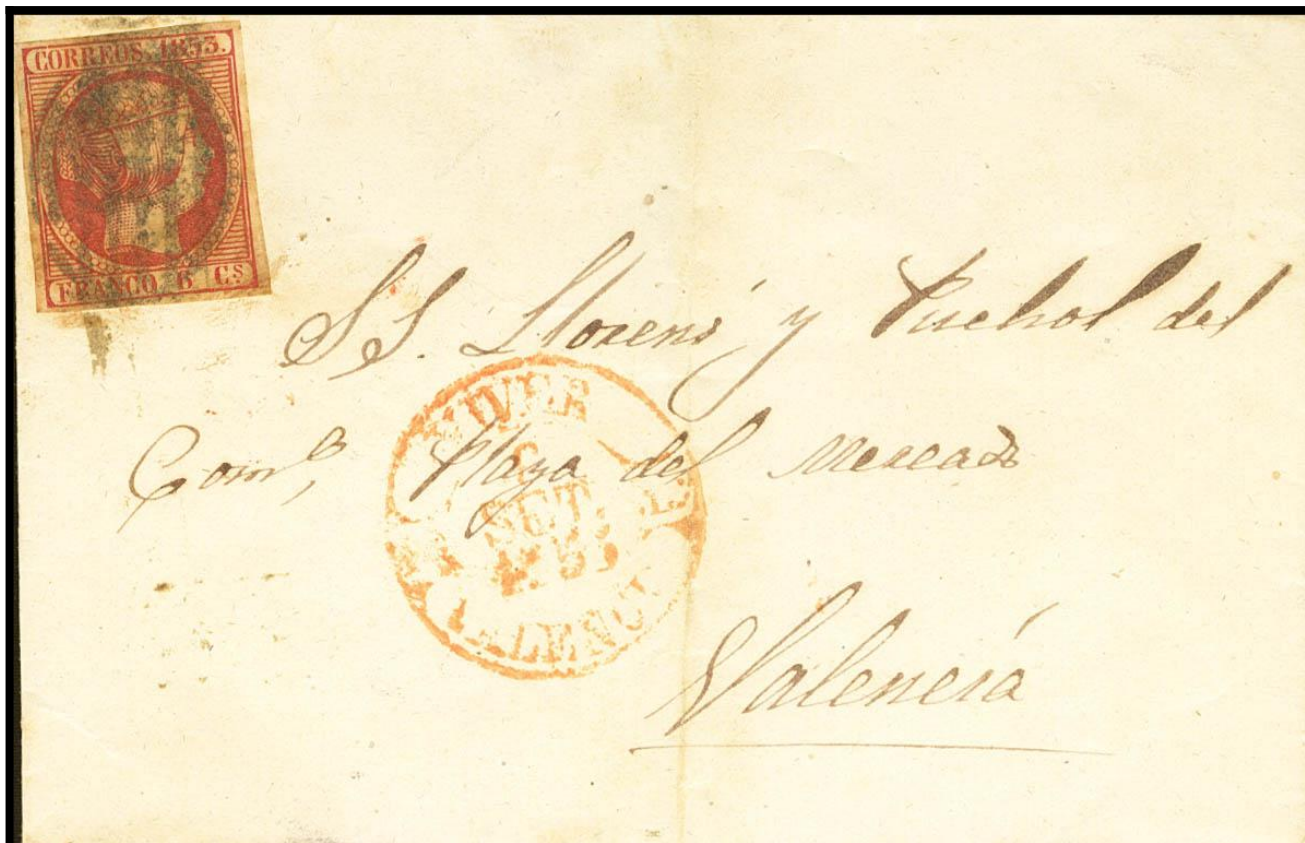 CORREOS. 1853.
FRANCO. 6 Cs
SS. Llorens y Puchol del
Como, Plaza del Mercado
VIVER
6
SET.
1853
VALENCIA
Valencia